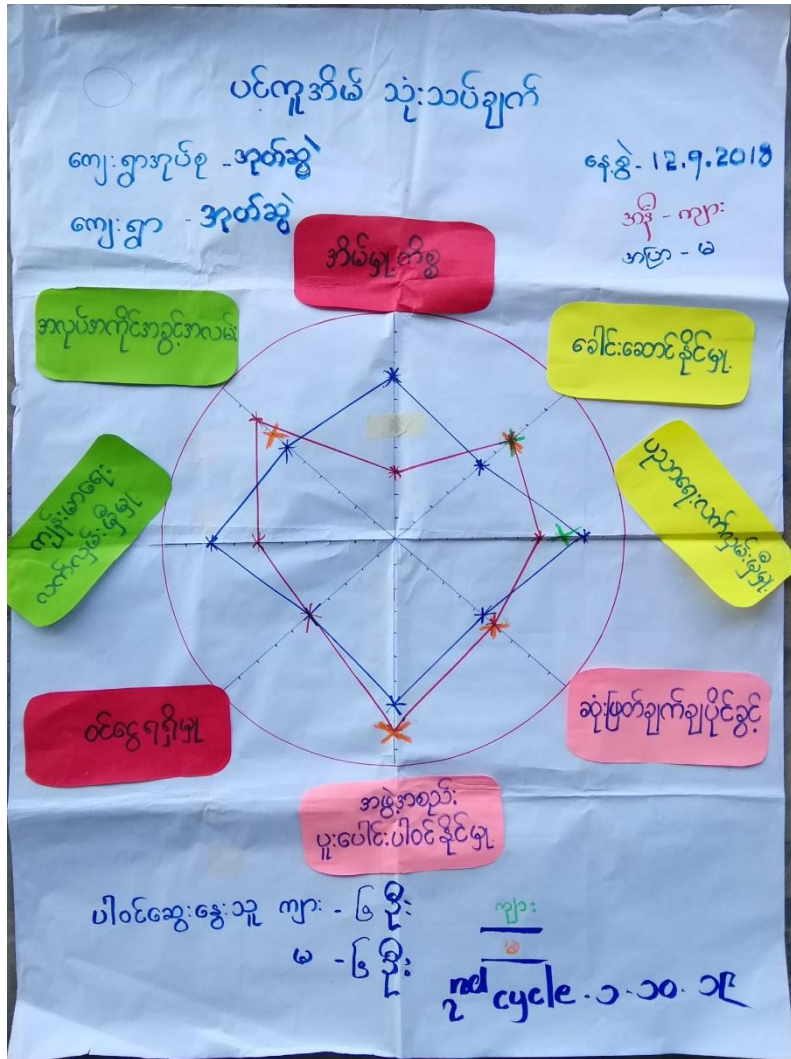 ပင်ကူအိမ် သုံးသပ်ချက်
ကျေးရွာအုပ်စု - အုတ်ဆွဲ
နေ့စွဲ - 12.9.2018
ကျေးရွာ - အုတ်ဆွဲ
အနီ - ကျား
အပြာ - မ
အိမ်မှုကိစ္စ
အလုပ်အကိုင်အခွင့်အလမ်း
ခေါင်းဆောင်နိုင်မှု
ကျန်းမာရေး
လက်လှမ်းမှီမှု
ပညာရေးလက်လှမ်းမှီမှု
ဝင်ငွေရရှိမှု
ဆုံးဖြတ်ချက်ချပိုင်ခွင့်
အဖွဲ့အစည်း
ပူးပေါင်းပါဝင်နိုင်မှု
ပါဝင်ဆွေးနွေးသူ ကျား - ၆ ဦး
မ - ၆ ဦး
ကျား
မ
2nd cycle . ၁ . ၁၀ . ၁၉